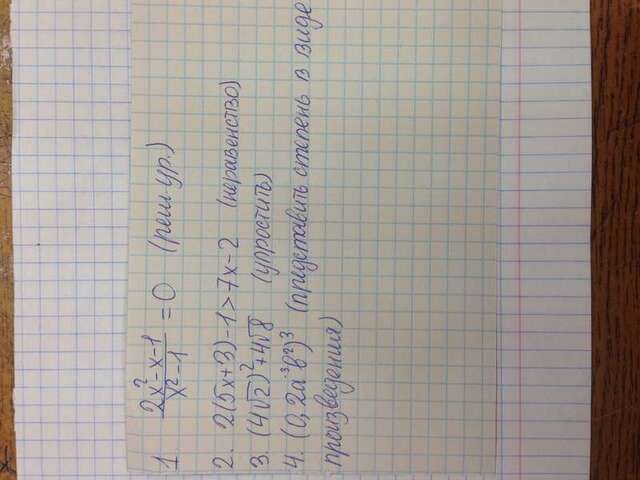 1. (2x² - x - 1)/(x² - 1) = 0 (реш ур.)
2. 2(5x + 3) - 1 > 7x - 2 (неравенство)
3. (4√2)² + 4√8 (упростить)
4. (0,2a⁻³b²)³ (представить степень в виде
произведения)